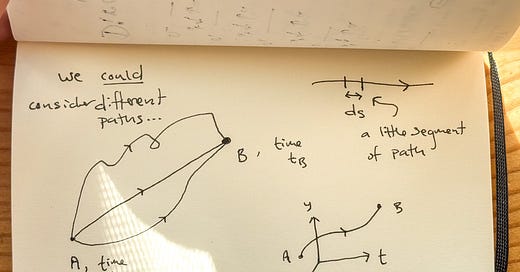 we could
consider different
paths...
B, time
t_B
A, time
ds
a little segment
of path
y
B
A
t